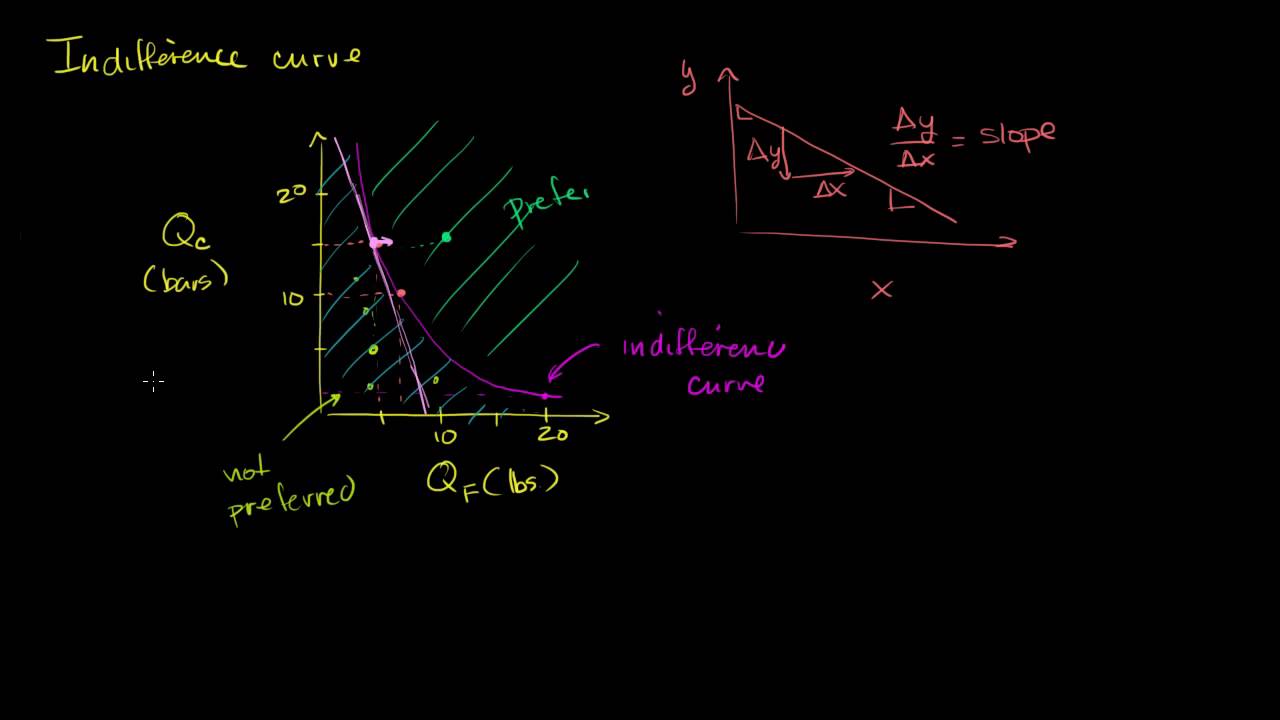 Indifference curve
20
Qc
(bars)
10
prefer
indifference
curve
10
20
QF (lbs.)
not
preferred
y
Δy
Δx
Δy/Δx = slope
x